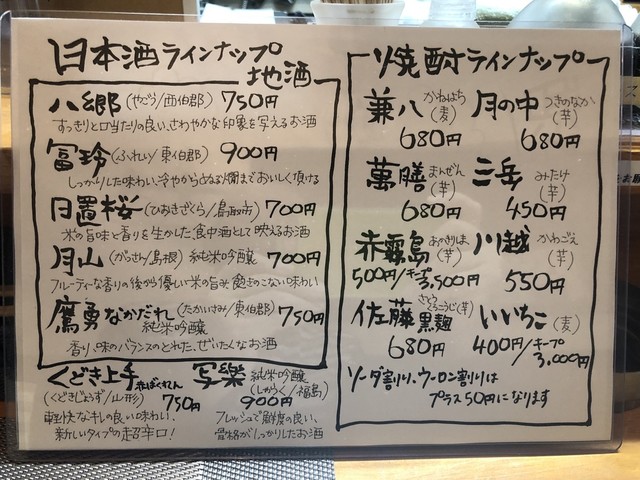 日本酒ラインナップ
地酒
八郷(やごう/西伯郡) 750円
すっきりと口当たりの良い、さわやかな印象を与えるお酒
冨玲(ふれい/東伯郡) 900円
しっかりした味わい、冷やからぬる燗までおいしく頂ける
日置桜(ひおきざくら/鳥取市) 700円
米の旨味と香りを生かした、食中酒として映えるお酒
月山(がっさん/島根) 純米吟醸 700円
フルーティーな香りの後から優しい米の旨み、飽きのこない味わい
鷹勇なかだれ(たかいさみ/東伯郡) 750円
純米吟醸
香り、味のバランスのとれた、ぜいたくなお酒
くどき上手 赤ばくれん
(くどきじょうず/山形) 750円
軽快なキレの良い味わい、
新しいタイプの超辛口!
写樂 純米吟醸
(しゃらく/福島)
900円
フレッシュで鮮度の良い、
骨格がしっかりしたお酒
焼酎ラインナップ
兼八 かねはち(麦)
680円
月の中 つきのなか(芋)
680円
萬膳 まんぜん(芋)
680円
三岳 みたけ(芋)
450円
赤霧島 あかきりしま(芋)
500円/キープ3,500円
川越 かわごえ(芋)
550円
佐藤 さとうくろこうじ(芋)
黒麹
680円
いいちこ(麦)
400円/キープ
3,000円
ソーダ割り、ウーロン割りは
プラス50円になります